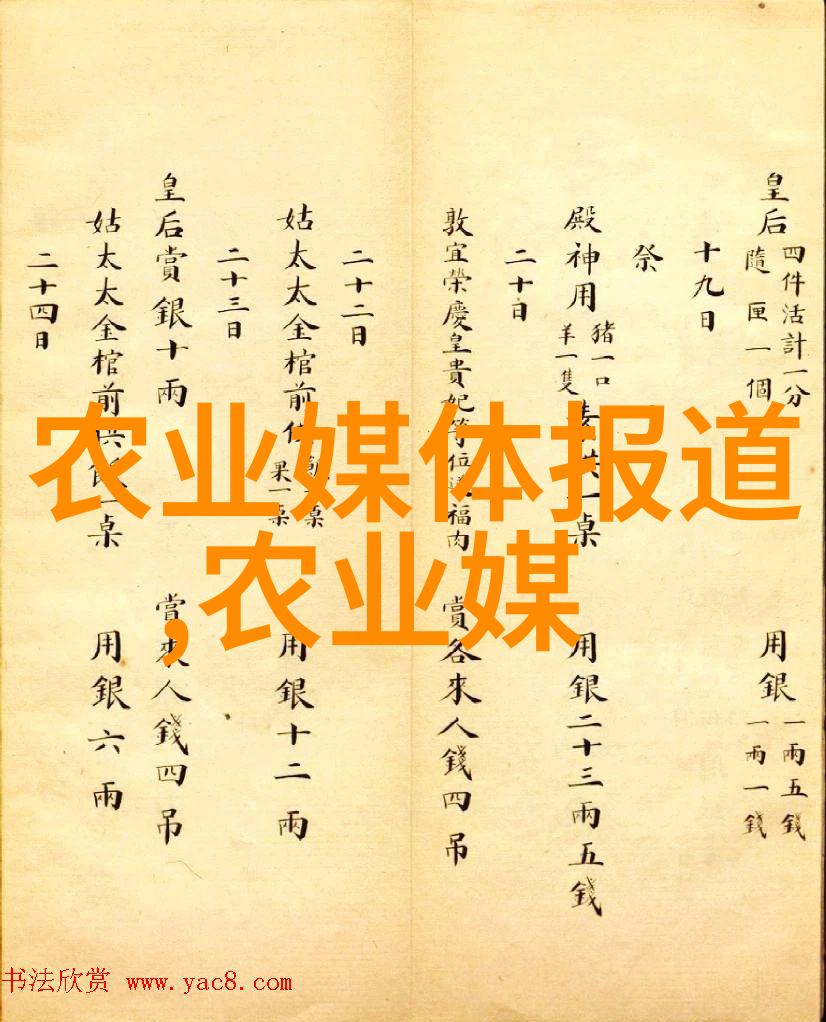 皇后 四件活計一分 隨匣一個 用銀 一兩五錢 一兩一錢
十九日
祭
殿神用 猪一口 羊一隻 供一桌 用銀二十三兩五錢
二十日
敦宜榮慶皇貴妃等位送福肉 賞各來人錢四吊
二十二日
姑太太金棺前供 果一桌 用銀十二兩
二十三日
皇后賞銀十兩 賞來人錢四吊
姑太太金棺前供飯一桌 用銀六兩
二十四日
农业媒体报道
,农业媒
书法欣赏 www.yac8.com